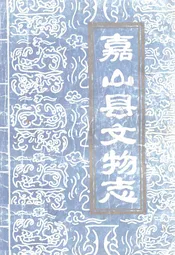 嘉山县文物志